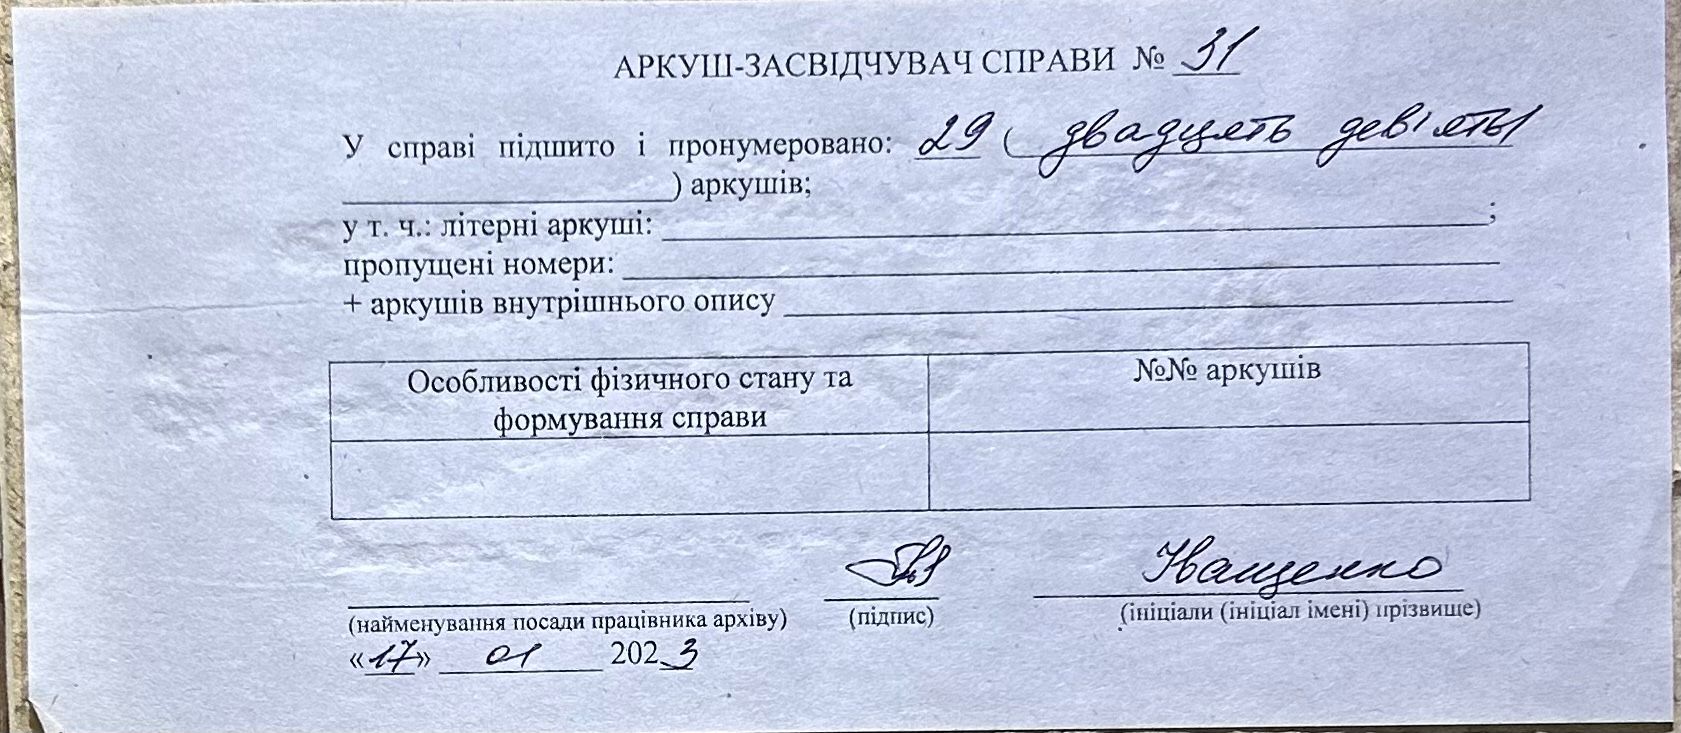 АРКУШ-ЗАСВІДЧУВАЧ СПРАВИ № 31
У справі підшито і пронумеровано: 29 ( двадцять девіять
) аркушів;
у т. ч.: літерні аркуші: ;
пропущені номери:
+ аркушів внутрішнього опису
Особливості фізичного стану та
формування справи
№№ аркушів
Іващенко
(найменування посади працівника архіву) (підпис) (ініціали (ініціал імені) прізвище)
«17» 01 2023